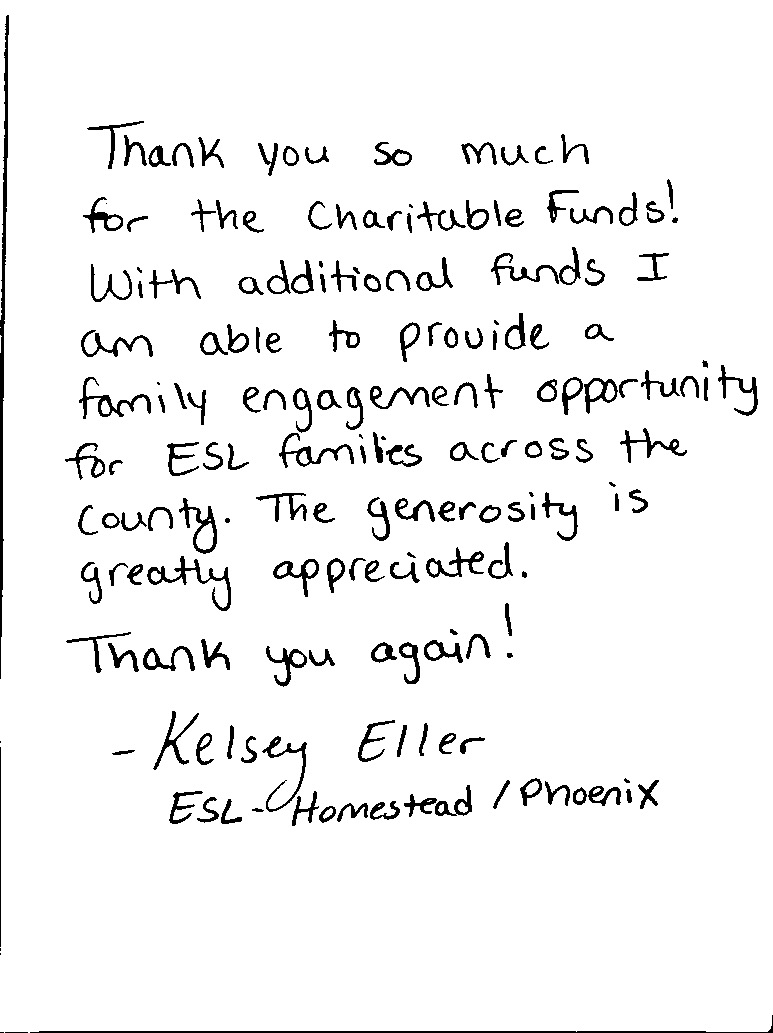 Thank you so much
for the Charitable Funds!
With additional funds I
am able to provide a
family engagement opportunity
for ESL families across the
County. The generosity is
greatly appreciated.
Thank you again!
- Kelsey Eller
ESL - Homestead / Phoenix